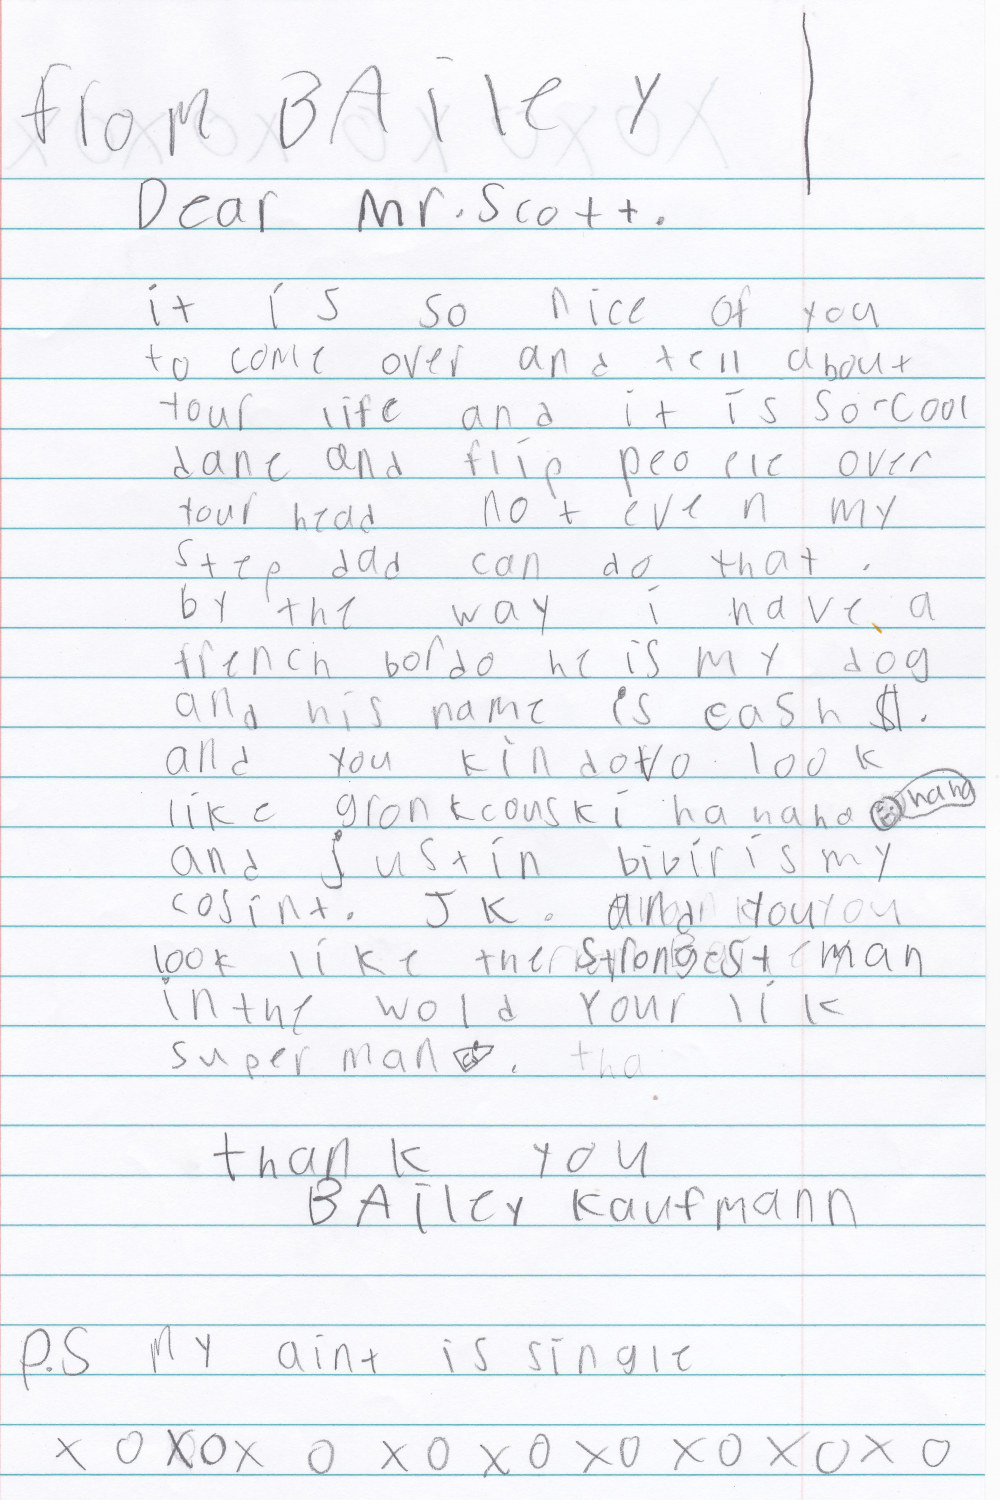 from BAiley
Dear Mr. Scott.
it is so nice of you
to come over and tell about
your life and it is so cool
dane and flip peo ele over
your head not even my
step dad can do that.
by the way i have a
french bordo he is my dog
and his name is cash $.
and you kin dovo look
like gronkcouski ha haha haha
and justin bivir is my
cosint. JK. and you
look like the strongest man
in the wold your lik
super man S. tha
thank you
BAiley Kaufmann
P.S My aint is single
x o x o x o x o x o x o x o x o x o